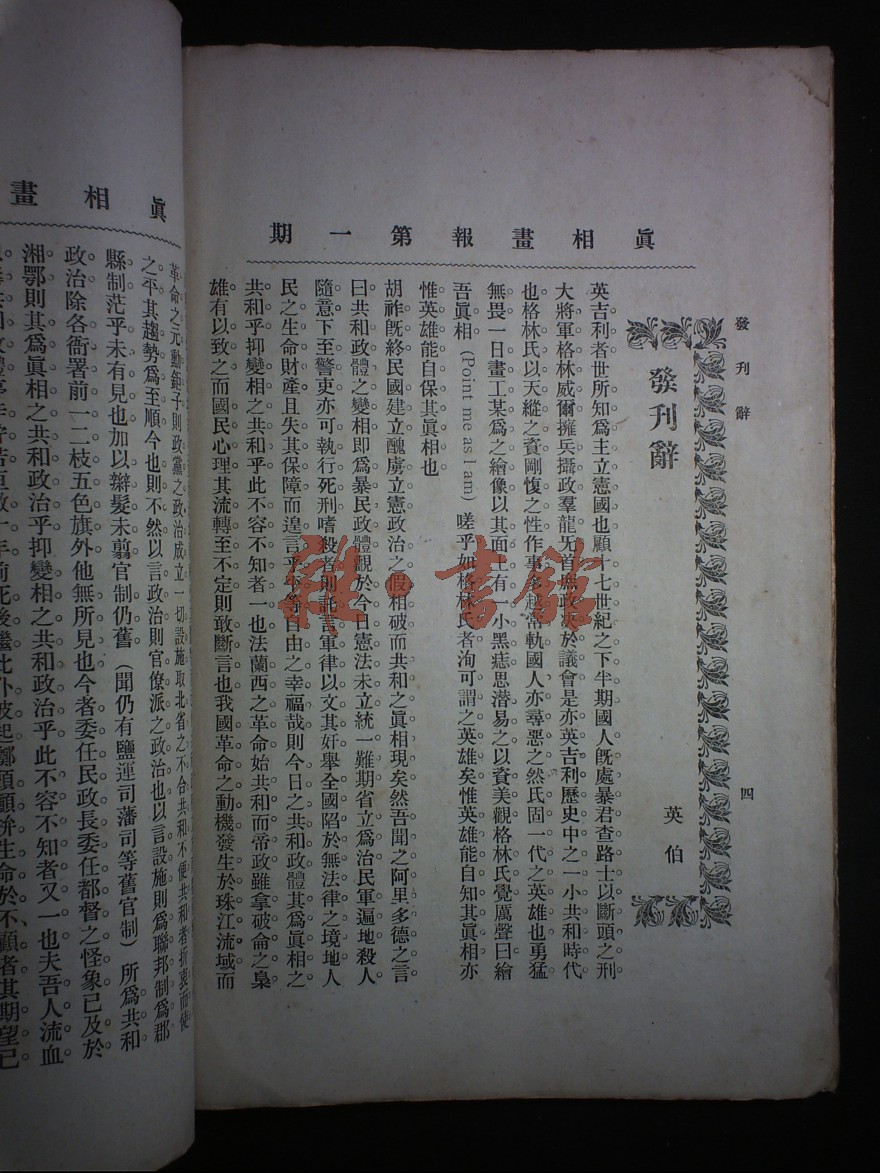 眞相畫報第一期
發刊辭
四
發刊辭
英伯
英吉利者世所知爲主立憲國也顧十七世紀之下半期國人旣處暴君查路士以斷頭之刑
大將軍格林威爾擁兵攝政羣龍旡首庶政決於議會是亦英吉利歷史中之一小共和時代
也格林氏以天縱之資剛愎之性作事多越常軌國人亦尋惡之然氏固一代之英雄也勇猛
無畏一日畫工某爲之繪像以其面上有一小黑痣思潛易之以資美觀格林氏覺厲聲曰繪
吾眞相(Point me as I am)嗟乎如格林氏者洵可謂之英雄矣惟英雄能自知其眞相亦
惟英雄能自保其眞相也
胡祚旣終民國建立醜虜立憲政治之假相破而共和之眞相現矣然吾聞之阿里多德之言
曰共和政體之變相即爲暴民政體觀於今日憲法未立統一難期省立爲治民軍遍地殺人
隨意下至警吏亦可執行死刑嗜殺者則託言軍律以文其奸舉全國陷於無法律之境地人
民之生命財產且失其保障而遑言乎平等自由之幸福哉則今日之共和政體其爲眞相之
共和乎抑變相之共和乎此不容不知者一也法蘭西之革命始共和而帝政雖拿破侖之梟
雄有以致之而國民心理其流轉至不定則敢斷言也我國革命之動機發生於珠江流域而
眞相畫
革命之元勳鉅子則政黨之政治成立一切設施取北省之不合共和不便共和者折衷而使
之平其趨勢爲至順今也則不然以言政治則官僚派之政治也以言設施則爲聯邦制爲郡
縣制茫乎未有見也加以辮髮未翦官制仍舊(聞仍有鹽運司藩司等舊官制)所爲共和
政治除各衙署前一二枝五色旗外他無所見也今者委任民政長委任都督之怪象已及於
湘鄂則其爲眞相之共和政治乎抑變相之共和政治乎此不容不知者又一也夫吾人流血
年前死後繼此仆彼起擲頭顱拚生命於不顧者其期望已
雜·書館